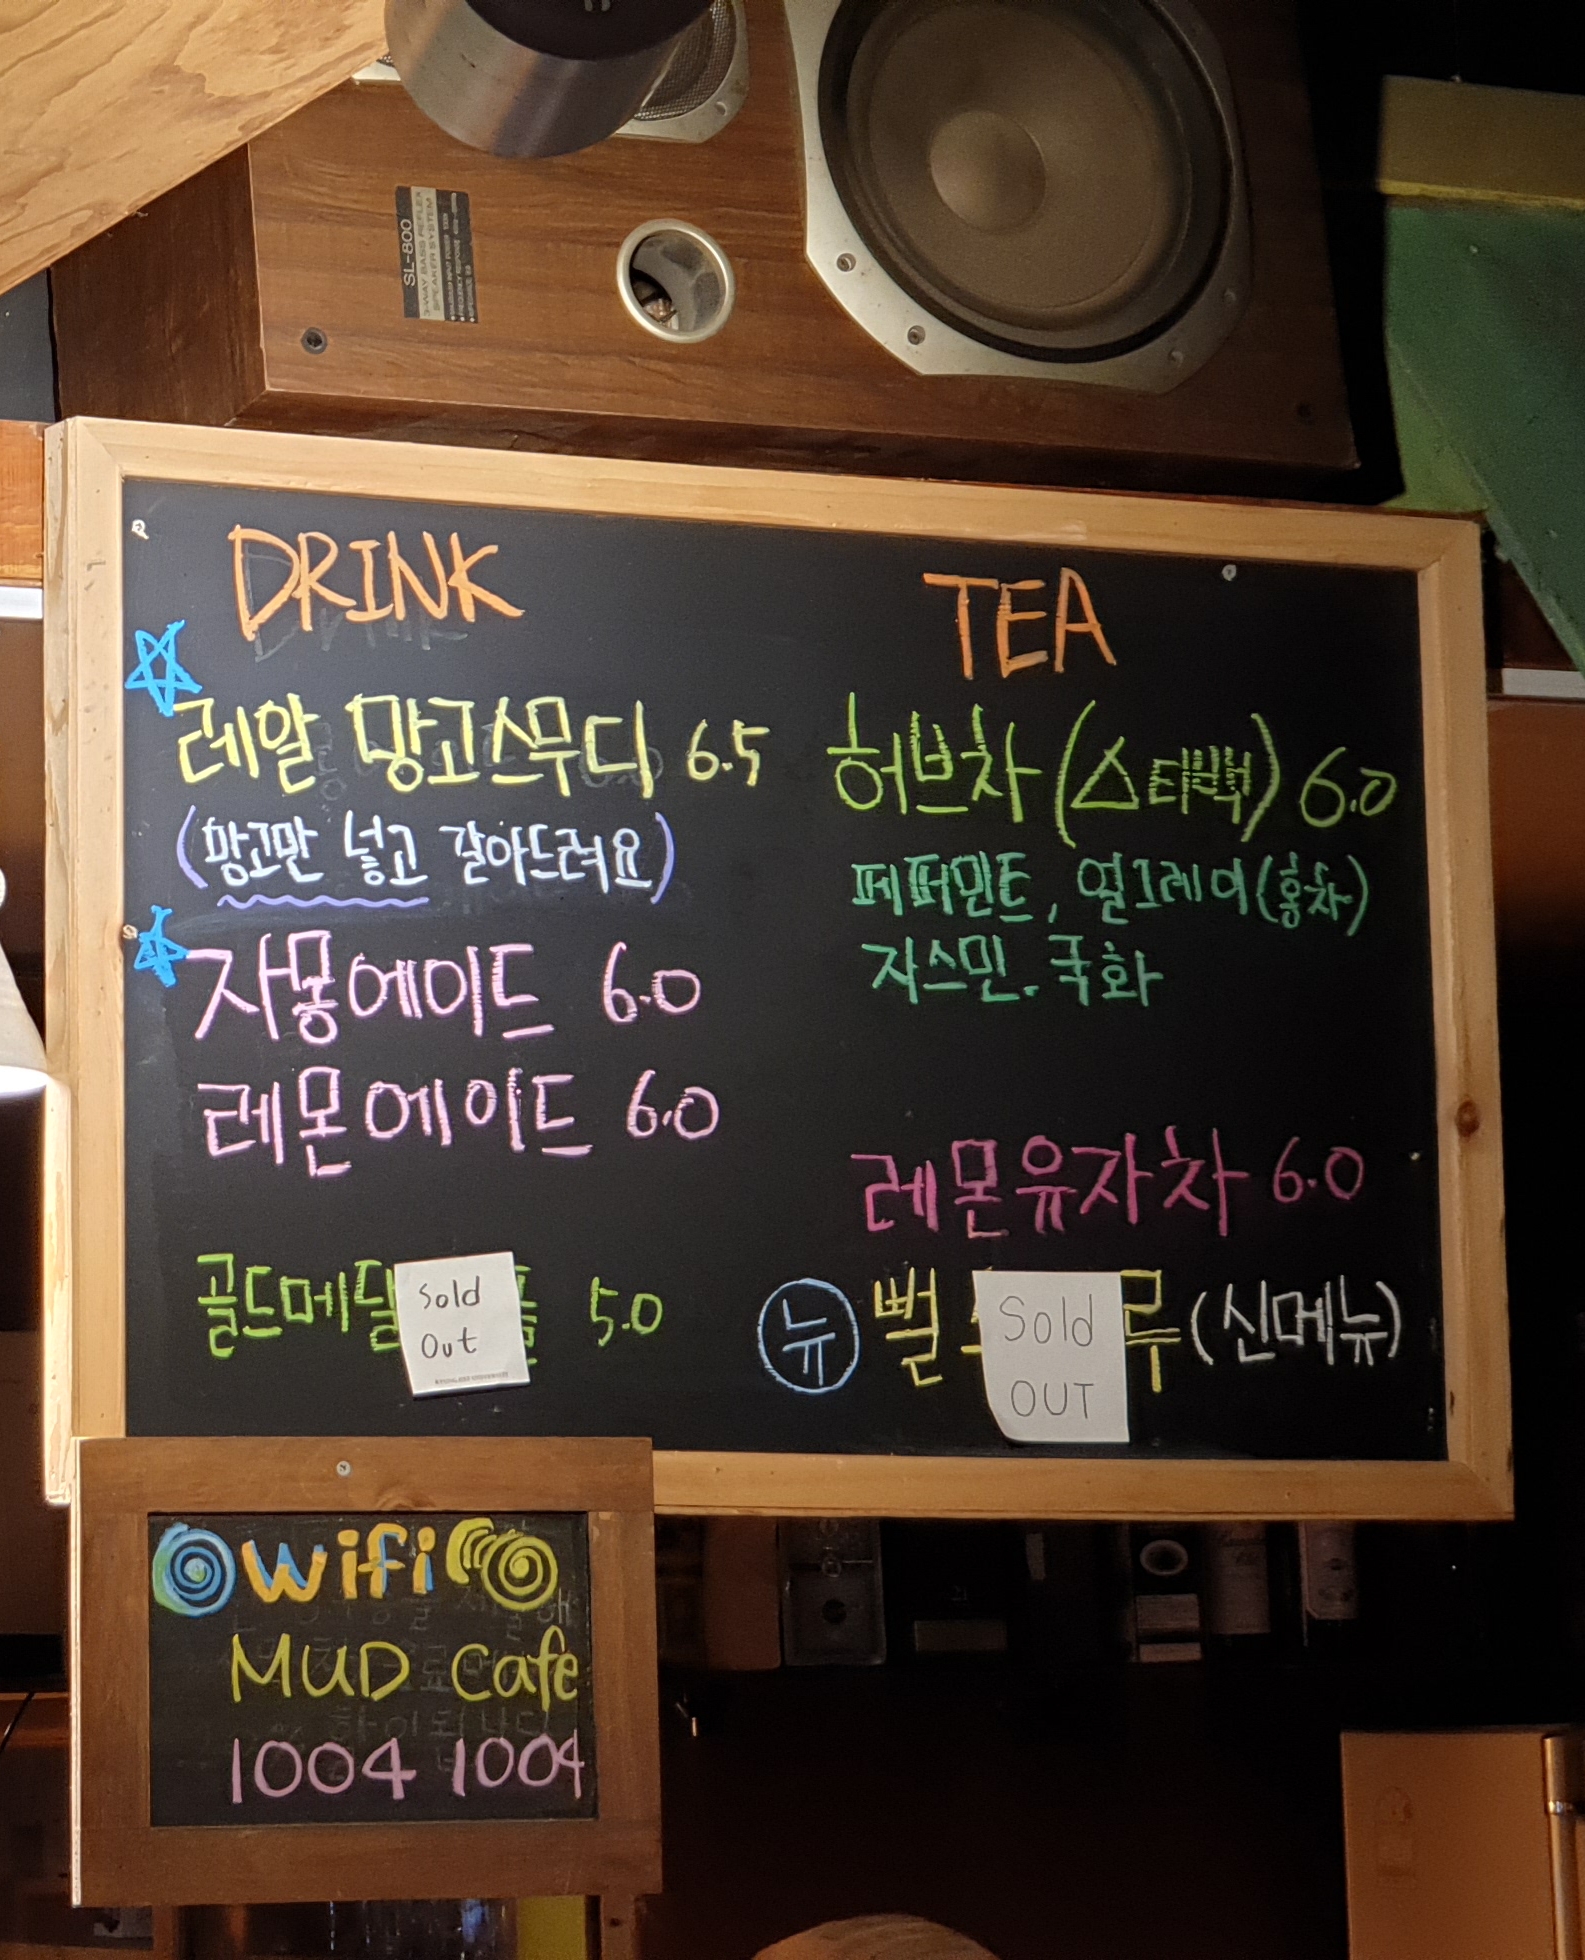 SL-800
3-WAY BASS REFLEX
SPEAKER SYSTEM
DRINK
레알 망고스무디 6.5
(망고만 넣고 갈아드려요)
자몽에이드 6.0
레몬에이드 6.0
골드메달 5.0
Sold
Out
TEA
허브차 (△티백) 6.0
페퍼민트, 얼그레이(홍차)
자스민. 국화
레몬유자차 6.0
뉴 뻘 루 (신메뉴)
Sold
OUT
wifi
MUD Cafe
1004 1004